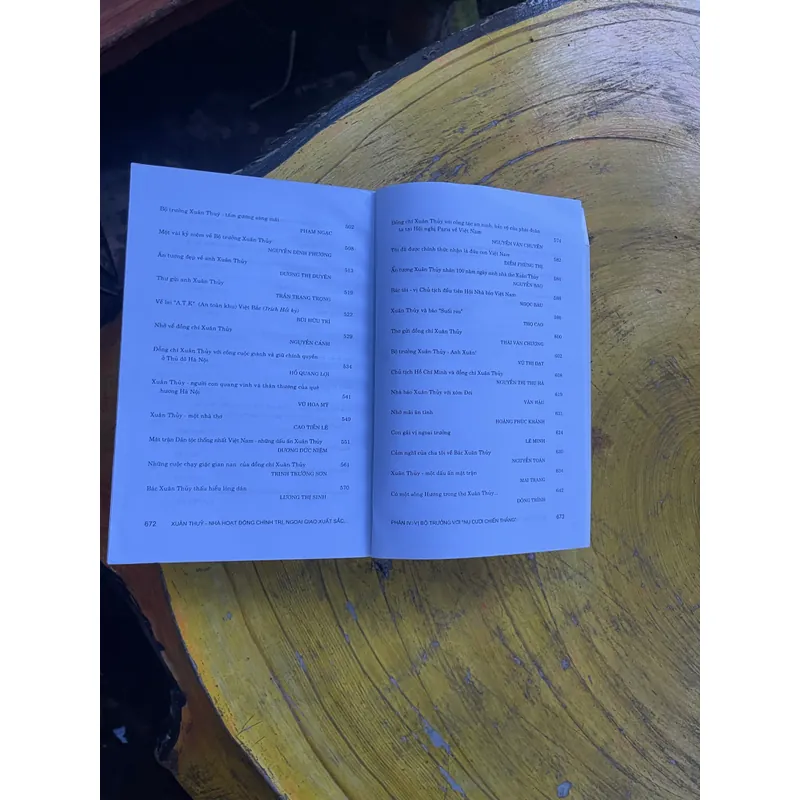 Bộ trưởng Xuân Thuỷ - tấm gương sáng mãi 502
PHẠM NGẠC
Một vài kỷ niệm về Bộ trưởng Xuân Thủy 508
NGUYỄN ĐÌNH PHƯƠNG
Ấn tượng đẹp về anh Xuân Thủy 513
DƯƠNG THỊ DUYÊN
Thư gửi anh Xuân Thủy
TRẦN TRANG TRỌNG
Về lại "A.T.K" (An toàn khu) Việt Bắc (Trích Hồi ký)
BÙI HỮU TRÍ
Nhớ về đồng chí Xuân Thủy 529
NGUYỄN CẢNH
Đồng chí Xuân Thủy với công cuộc giành và giữ chính quyền 534
ở Thủ đô Hà Nội
HỒ QUANG LỢI
Xuân Thủy - người con quang vinh và thân thương của quê 541
hương Hà Nội
VŨ HOA MỸ
Xuân Thủy - một nhà thơ
CAO TIẾN LÊ
Mặt trận Dân tộc thống nhất Việt Nam - những dấu ấn Xuân Thủy 551
DƯƠNG ĐỨC NIỆM
Những cuộc chạy giặc gian nan của đồng chí Xuân Thủy 561
TRỊNH TRƯỜNG SƠN
Bác Xuân Thủy thấu hiểu lòng dân 570
LƯƠNG THỊ SINH
672 XUÂN THUỶ - NHÀ HOẠT ĐỘNG CHÍNH TRỊ, NGOẠI GIAO XUẤT SẮC...
Đồng chí Xuân Thủy với công tác an ninh, bảo vệ của phái đoàn
ta tại Hội nghị Paris về Việt Nam 574
NGUYỄN VĂN CHUYÊN
Tôi đã được chính thức nhận là dâu con Việt Nam
ĐIỀM PHÙNG THỊ
Ấn tượng Xuân Thủy nhân 100 năm ngày sinh nhà thơ Xuân Thủy
Bác tôi - vị Chủ tịch đầu tiên Hội Nhà báo Việt Nam
Xuân Thủy và báo "Suối reo"
THỌ CAO
Thơ gửi đồng chí Xuân Thủy
THÁI VĂN CHƯƠNG
Bộ trưởng Xuân Thủy - Anh Xuân
VŨ THỊ ĐẠT
Chủ tịch Hồ Chí Minh và đồng chí Xuân Thủy
NGUYỄN THỊ THU HÀ
Nhà báo Xuân Thủy với xóm Đơi
VĂN HẬU
Nhớ mãi ân tình
HOÀNG PHÚC KHÁNH
Con gái vị ngoại trưởng 624
LÊ MINH
Cảm nghĩ của cha tôi về Bác Xuân Thủy
NGUYỄN TUÂN
Xuân Thủy - một dấu ấn mặt trận
MAI TRANG
Có một sông Hương trong thơ Xuân Thủy... 642
ĐÔNG TRÌNH
PHẦN IV: VỊ BỘ TRƯỞNG VỚI "NỤ CƯỜI CHIẾN THẮNG" 673